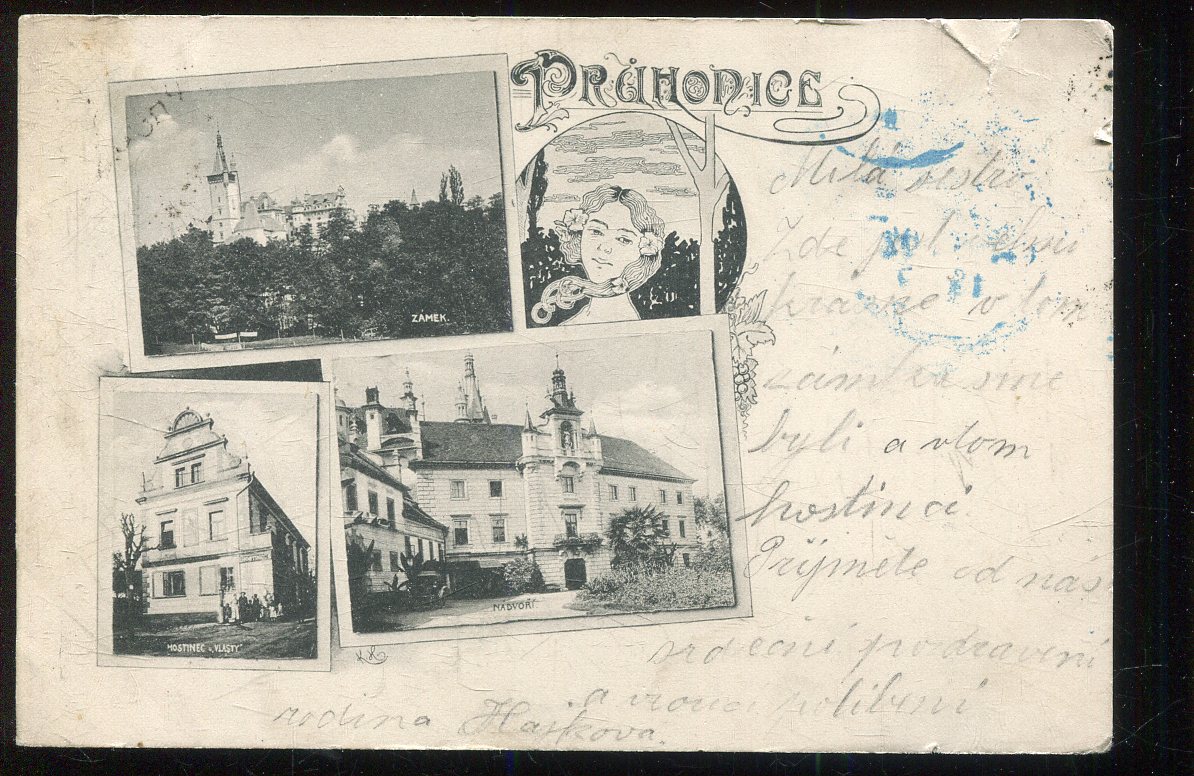 Průhonice
ZÁMEK.
HOSTINEC u „VLASTY“
NÁDVOŘÍ
KH
Milá sestro
Zde
krásné v tom
zámku sme
byli a vtom
hostinci.
Přijměte od nás
srdečni pozdravení
a vroucí políbení
rodina